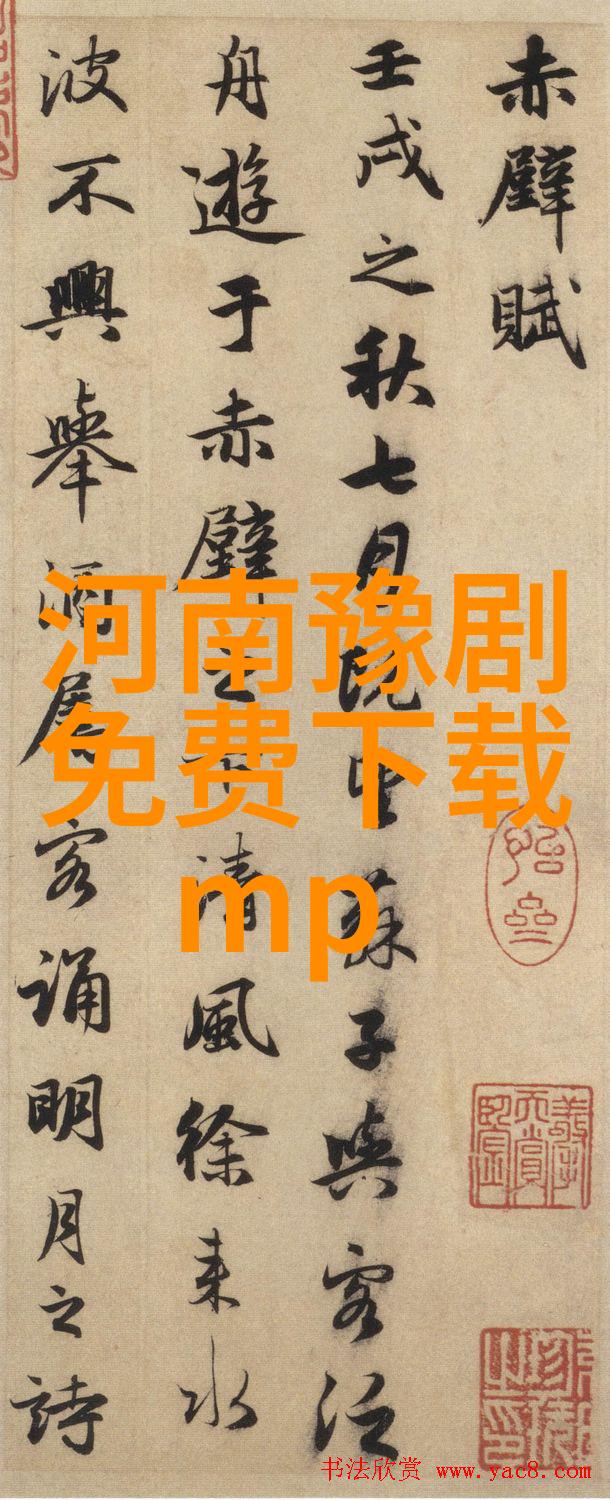 赤壁賦
壬戌之秋七月既望蘇子與客泛
舟遊于赤壁之下清風徐来水
波不興舉酒屬客誦明月之詩
河南豫剧
免费下载
mp
书法欣赏 www.yac8.com